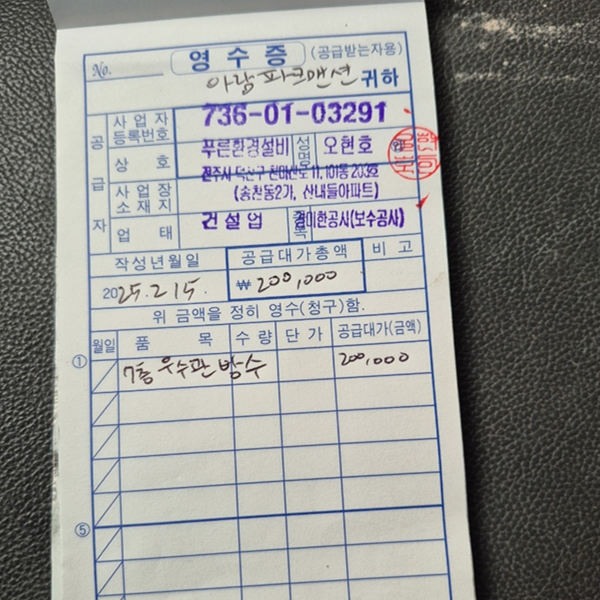 No. 영수증 (공급받는자용)
아람파크맨션 귀하
공급자
사업자등록번호 736-01-03291
상호 푸른환경설비 성명 오현호
사업장소재지 전주시 덕진구 천마산로 11, 101동 203호
(송천동2가, 산내들아파트)
업태 건설업 종목 경미한공사(보수공사)
작성년월일 공급대가총액 비고
2025.2.15. ₩200,000
위 금액을 정히 영수(청구)함.
월일 품목 수량 단가 공급대가(금액)
① 7층 우수관 방수 200,000
⑤